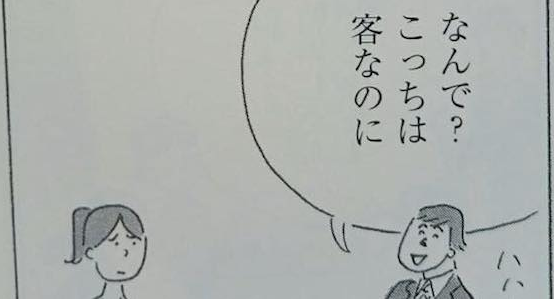 なんで？
こっちは
客なのに
ハハ